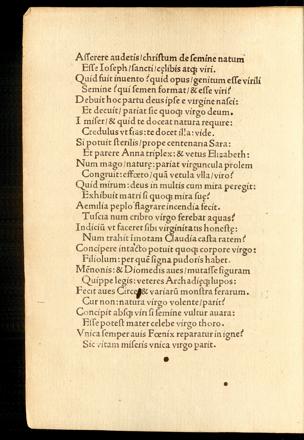 Asserere audetis/christum de semine natum
Esse Ioseph/sancti/cęlibis atq; viri.
Quid fuit inuento? quid opus/genitum esse virili
Semine? qui semen format/& esse viri?
Debuit hoc partu deus ipse e virgine nasci:
Et decuit/pariat sic quoq; virgo deum.
I miser/& quid te doceat natura require:
Credulus vt fias: te docet illa: vide.
Si potuit sterilis/prope centenaria Sara:
Et parere Anna triplex: & vetus Elizabeth:
Num mago/naturę: pariat virguncula prolem
Congruit: effœto/quā vetula vlla/viro?
Quid mirum: deus in multis cum mira peregit:
Exhibuit matri si quoq; mira suę?
Aemilia peplo flagrare incendia fecit.
Tuscia num cribro virgo ferebat aquas?
Indiciū vt faceret sibi virginitatis honestę:
Num trahit īmotam Claudia casta ratem?
Concipere intacto potuit quoq; corpore virgo:
Filiolum: per quē signa pudoris habet.
Mēnonis: & Diomedis aues/mutasse figuram
Quippe legis: veteres Archadięq; lupos:
Fecit aues Circe/& variarū monstra ferarum.
Cur non: natura virgo volente/parit?
Concipit absq; viri si semine vultur auara:
Esse potest mater celebe virgo thoro.
Vnica semper auis Fœnix reparatur in igne?
Sic vitam miseris vnica virgo parit.